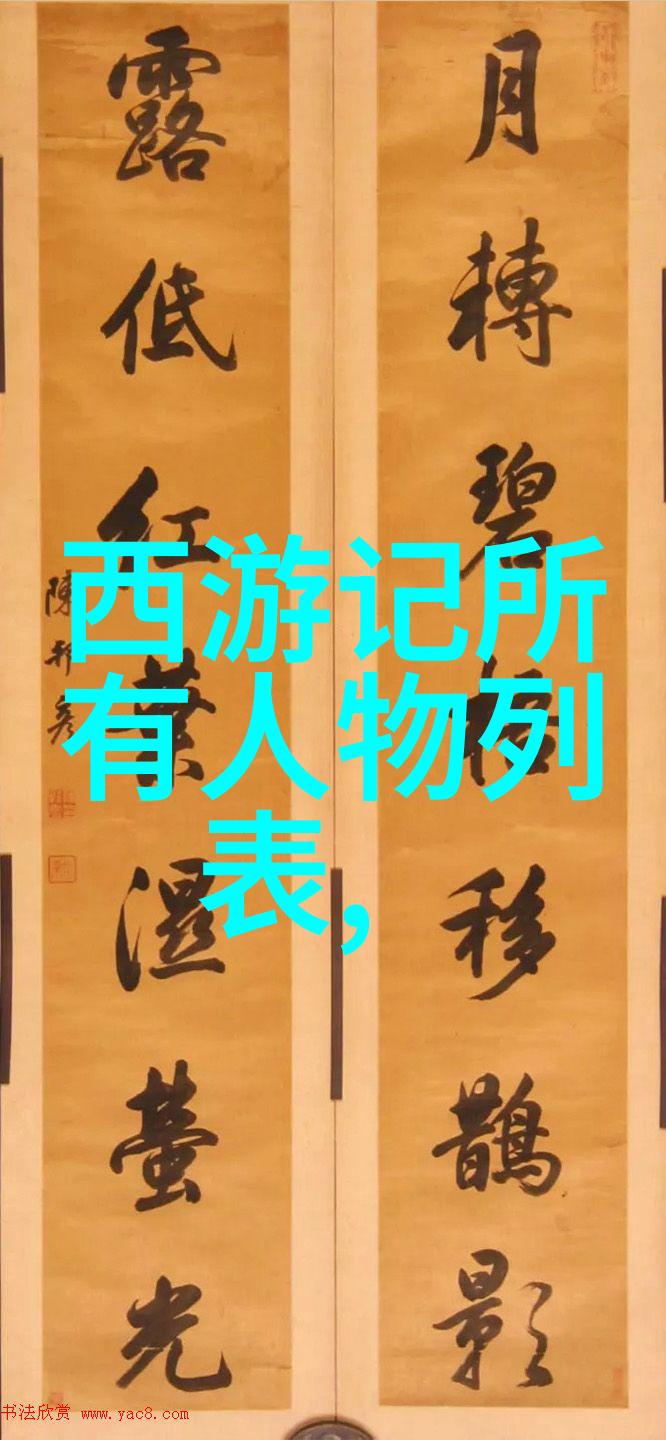 月轉碧梧移鵲影
露低紅葉濕螢光
陳邦彥
西游记所
有人物列
表,
书法欣赏 www.yac8.com